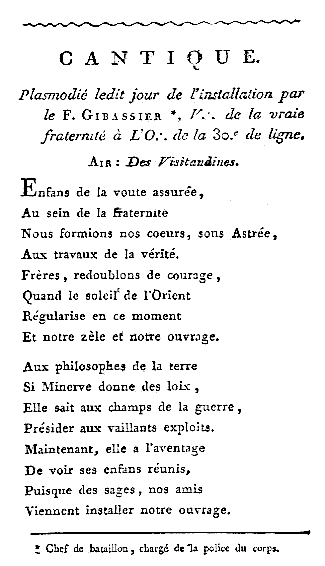 CANTIQUE.
Plasmodié ledit jour de l'installation par
le F. GIBASSIER *, V.·. de la vraie
fraternité à L'O.·. de la 30.e de ligne.
AIR : Des Visitandines.
Enfans de la voute assurée,
Au sein de la fraternité
Nous formions nos coeurs, sous Astrée,
Aux travaux de la vérité.
Frères, redoublons de courage,
Quand le soleil de l'Orient
Régularise en ce moment
Et notre zèle et notre ouvrage.
Aux philosophes de la terre
Si Minerve donne des loix,
Elle sait aux champs de la guerre,
Présider aux vaillants exploits.
Maintenant, elle a l'aventage
De voir ses enfans réunis,
Puisque des sages, nos amis
Viennent installer notre ouvrage.
* Chef de bataillon, chargé de la police du corps.